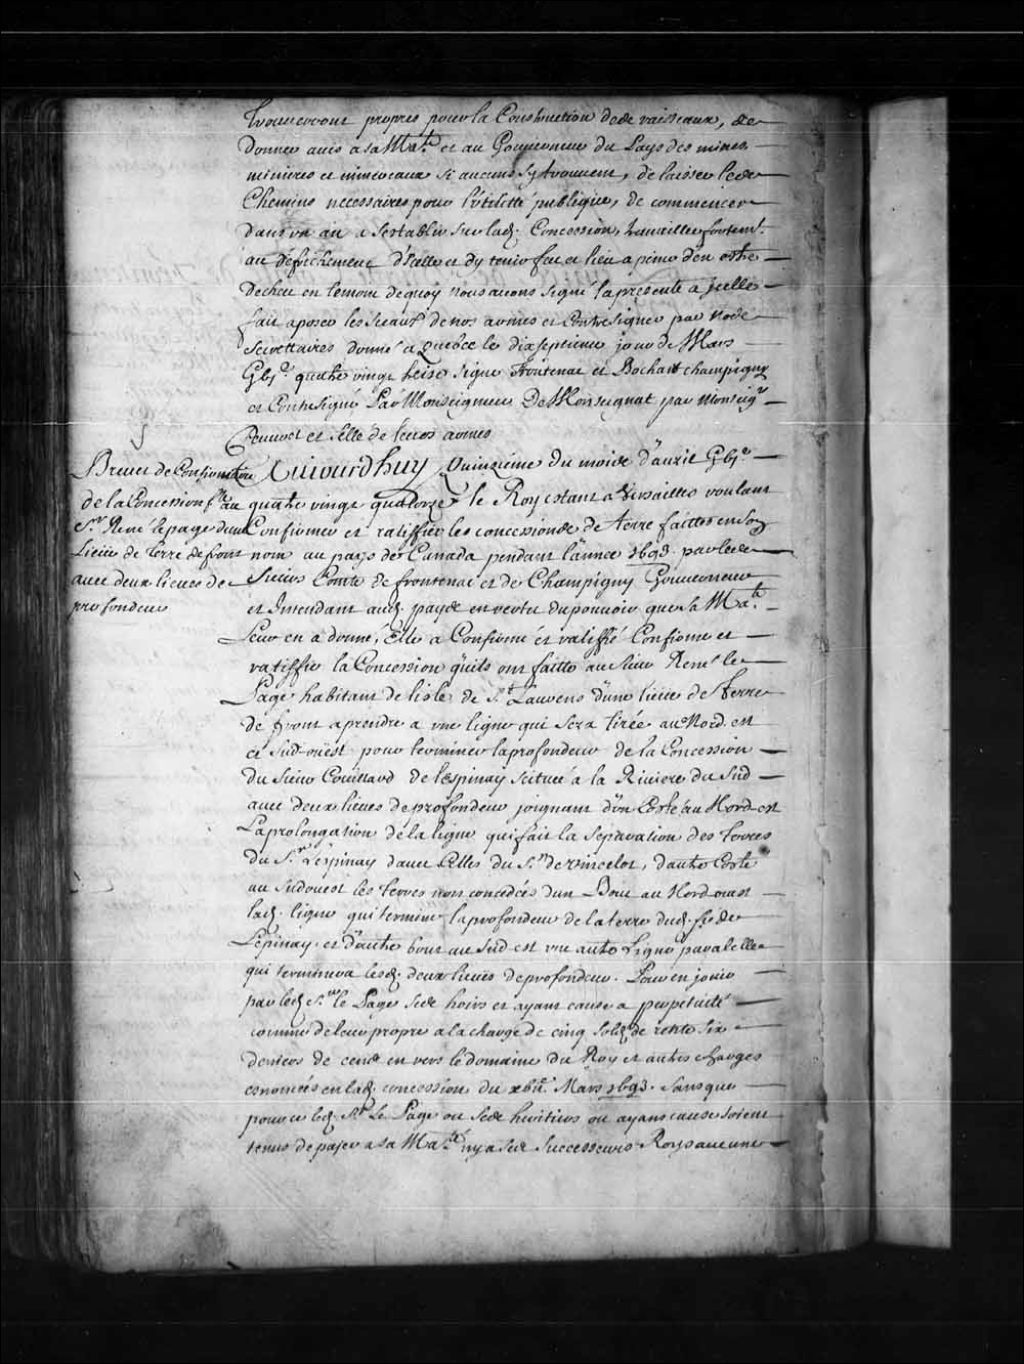 trouveront propres pour la Construction desde vaisseaux, de
donner avis a sa Ma.té et au Gouverneur du Pays des mines
minieres et mineraux si aucuns sy trouvent, de laisser les
Chemins necessaires pour l'utilitté publique, de commencer
dans un an a sestablir sur lad. Concession, travailler fortemt.
au défrichement d'Icelle et dy tenir feu et lieu a peine d'en estre
decheu en temoin dequoy nous avons signé la presente a Icelle
fait aposer les sceaux de nos armes et Contresigner par nos
Secrettaires donné a Quebec le dixseptieme jour de Mars
Gbi.c quatre vingt treise signe frontenac et Bochart champigny
et Contresigné Par Monseigneur De Monseignat par Monseigr
Peuvret et sellé de leurs armes
Brevet de Confirmation
de la Concession f.te au
S.r René Lepage dune
Lieüe de terre de front
avec deux lieues de
profondeur
Aujourdhuy Quinziéme du mois d'avril Gbi.c
quatre vingt quatorze le Roy estant a Versailles voulant
Confirmer et ratiffier les concessions de terre faittes en son
nom au pays de Canada pendant l'année 1693. par les
Sieurs Comte de frontenac et de Champigny Gouverneur
et Intendant aud. pays en vertu du pouvoir que sa Ma.té
Leur en a donné, Elle a Confirmé et ratiffié Confirme et
ratiffie la Concession quils ont faitte au Sieur René le
Page habitant de lisle de S.t Laurens d'une lieüe de terre
de front a prendre a une ligne qui sera tirée au Nord est
et sud oüest pour terminer la profondeur de la Concession
du Sieur Coüillard de lespinay scituée a la Riviere du Sud
avec deux lieües de profondeur joignant d'un Costé au Nord est
La prolongation de la ligne qui fait la separation des terres
du S.r Lespinay davec Celles du S.r de vincelot, dautre Costé
au sudouest les terres non concedées d'un Bout au Nord ouest
lad. ligne qui termine la profondeur de la terre dud. S.r de
Lepinay et d'autre bout au Sud est une autre Ligne paralelle
qui terminera lesd. deux lieues de profondeur. Pour en jouir
par led. S.r le Page ses hoirs et ayant cause a perpetuité
comme de leur propre a la charge de cinq sols de rente six
deniers de cens en vers le domaine du Roy et autres charges
enoncées en lad. concession du Mars 1693. sans que
pour ce led. S.r Le Page ou ses heritiers ou ayans cause soient
tenus de payer a sa Ma.té ny a ses Successeurs Roys aucune